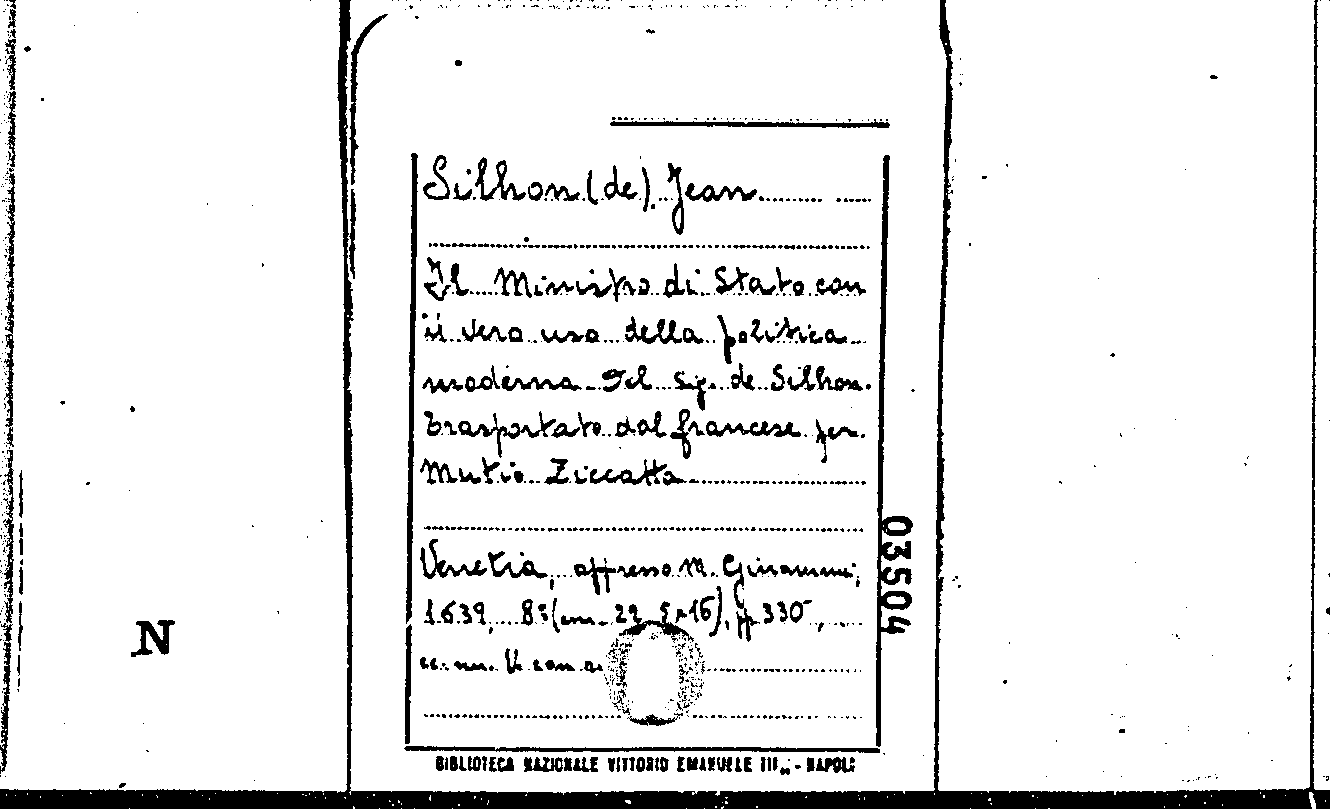 Silhon (de). Jean
Il Ministro di Stato con
il vero uso della politica
moderna. Del Sig. de Silhon.
Trasportato dal francese per
Mutio Ziccatta
Venetia, appresso M. Ginammi,
1639, 8º (cm. 22 x 16), pp 330,
cc. nn.
03504
N
BIBLIOTECA NAZIONALE VITTORIO EMANUELE III„ - NAPOLI